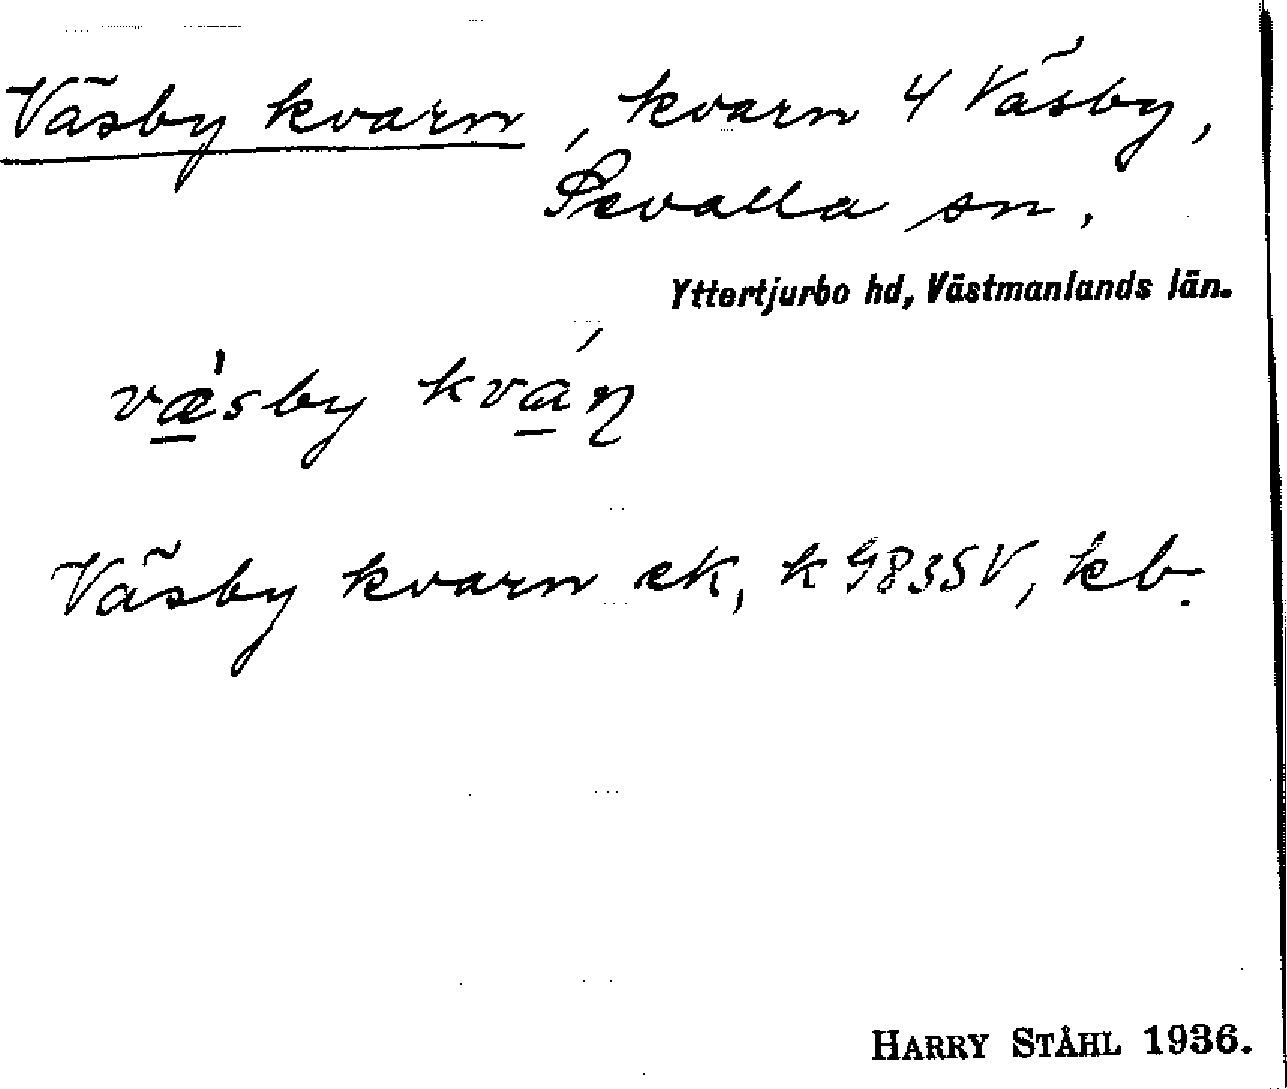 Väsby kvarn, kvarn u Väsby,
Sevalla sn.
Yttertjurbo hd, Västmanlands län.
væ̀sby kván
Väsby kvarn ek, k 9835V, kb.
HARRY STÅHL 1936.